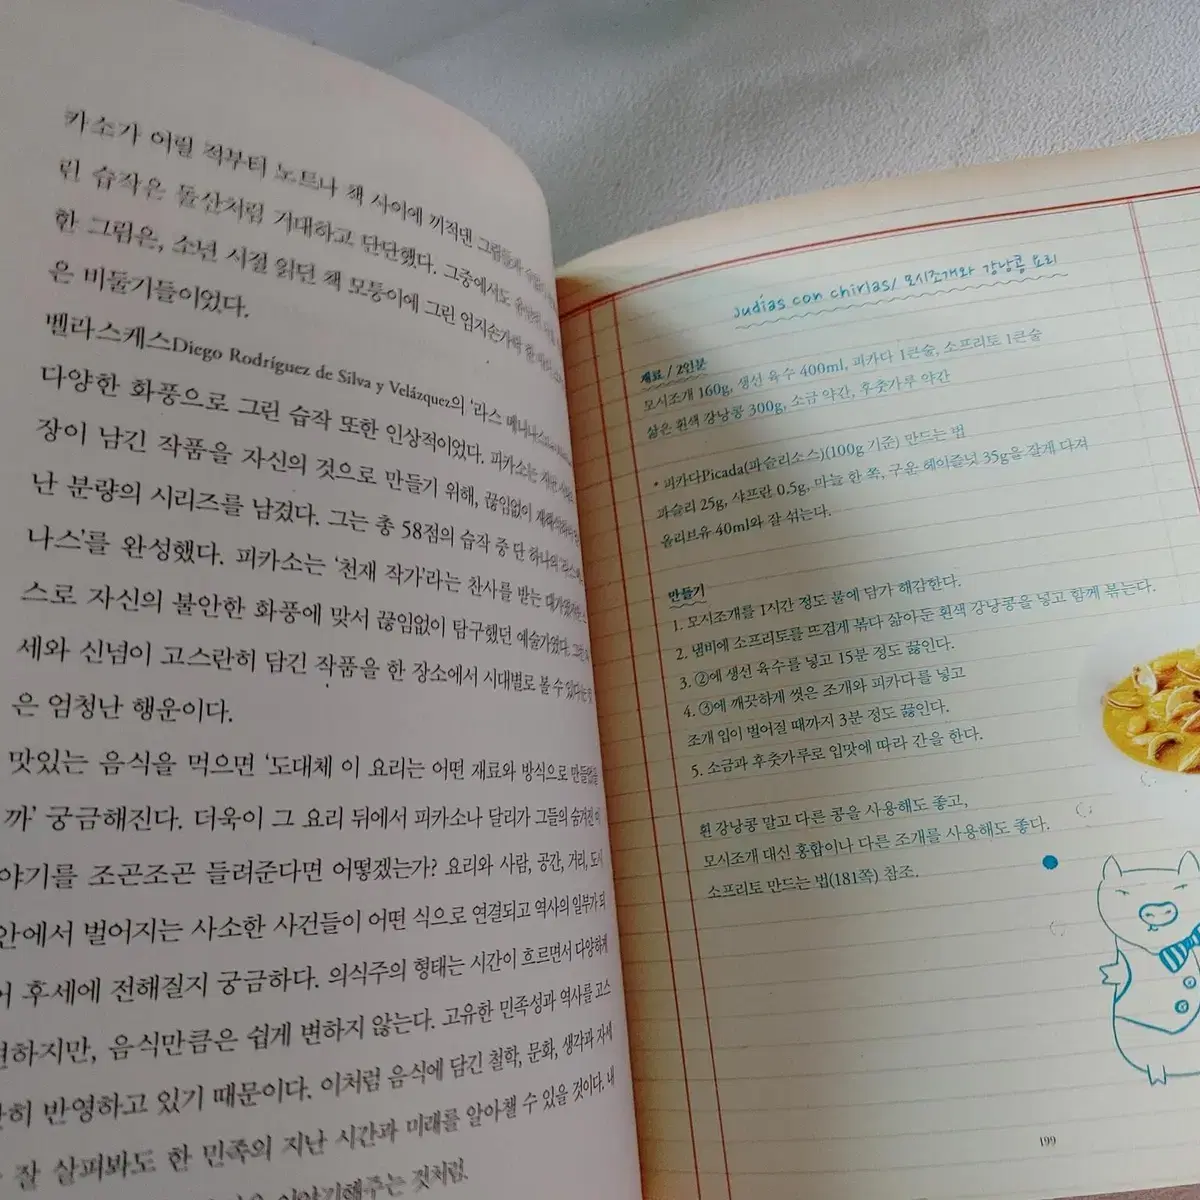 카소가 어릴 적부터 노트나 책 사이에 끼적댄 그림들과
린 습작은 돌산처럼 거대하고 단단했다. 그중에서도
한 그림은, 소년 시절 읽던 책 모퉁이에 그린 엄지손가락
은 비둘기들이었다.
벨라스케스Diego Rodríguez de Silva y Velázquez의 '라스 메니나스
다양한 화풍으로 그린 습작 또한 인상적이었다. 피카소는
장이 남긴 작품을 자신의 것으로 만들기 위해, 끊임없이
난 분량의 시리즈를 남겼다. 그는 총 58점의 습작 중 단 하나의
나스'를 완성했다. 피카소는 '천재 작가'라는 찬사를 받는
스로 자신의 불안한 화풍에 맞서 끊임없이 탐구했던 예술가였다.
세와 신념이 고스란히 담긴 작품을 한 장소에서 시대별로 볼 수 있다는 것
은 엄청난 행운이다.
맛있는 음식을 먹으면 '도대체 이 요리는 어떤 재료와 방식으로 만들었을
까' 궁금해진다. 더욱이 그 요리 뒤에서 피카소나 달리가 그들의 숨겨진 이
야기를 조곤조곤 들려준다면 어떻겠는가? 요리와 사람, 공간, 거리, 도시
안에서 벌어지는 사소한 사건들이 어떤 식으로 연결되고 역사의 일부가 되
어 후세에 전해질지 궁금하다. 의식주의 형태는 시간이 흐르면서 다양하게
변하지만, 음식만큼은 쉽게 변하지 않는다. 고유한 민족성과 역사를 고스
란히 반영하고 있기 때문이다. 이처럼 음식에 담긴 철학, 문화, 생각과 자세
잘 살펴봐도 한 민족의 지난 시간과 미래를 알아챌 수 있을 것이다. 내
이야기해주는 것처럼.
Judías con chirlas/ 모시조개와 강낭콩 요리
재료 / 2인분
모시조개 160g, 생선 육수 400ml, 피카다 1큰술, 소프리토 1큰술
삶은 흰색 강낭콩 300g, 소금 약간, 후춧가루 약간
• 피카다Picada(파슬리소스)(100g 기준) 만드는 법
파슬리 25g, 샤프란 0.5g, 마늘 한 쪽, 구운 헤이즐넛 35g을 잘게 다져
올리브유 40ml와 잘 섞는다.
만들기
1. 모시조개를 1시간 정도 물에 담가 해감한다.
2. 냄비에 소프리토를 뜨겁게 볶다 삶아둔 흰색 강낭콩을 넣고 함께 볶는다.
3. ②에 생선 육수를 넣고 15분 정도 끓인다.
4. ③에 깨끗하게 씻은 조개와 피카다를 넣고
조개 입이 벌어질 때까지 3분 정도 끓인다.
5. 소금과 후춧가루로 입맛에 따라 간을 한다.
흰 강낭콩 말고 다른 콩을 사용해도 좋고,
모시조개 대신 홍합이나 다른 조개를 사용해도 좋다.
소프리토 만드는 법(181쪽) 참조.
199